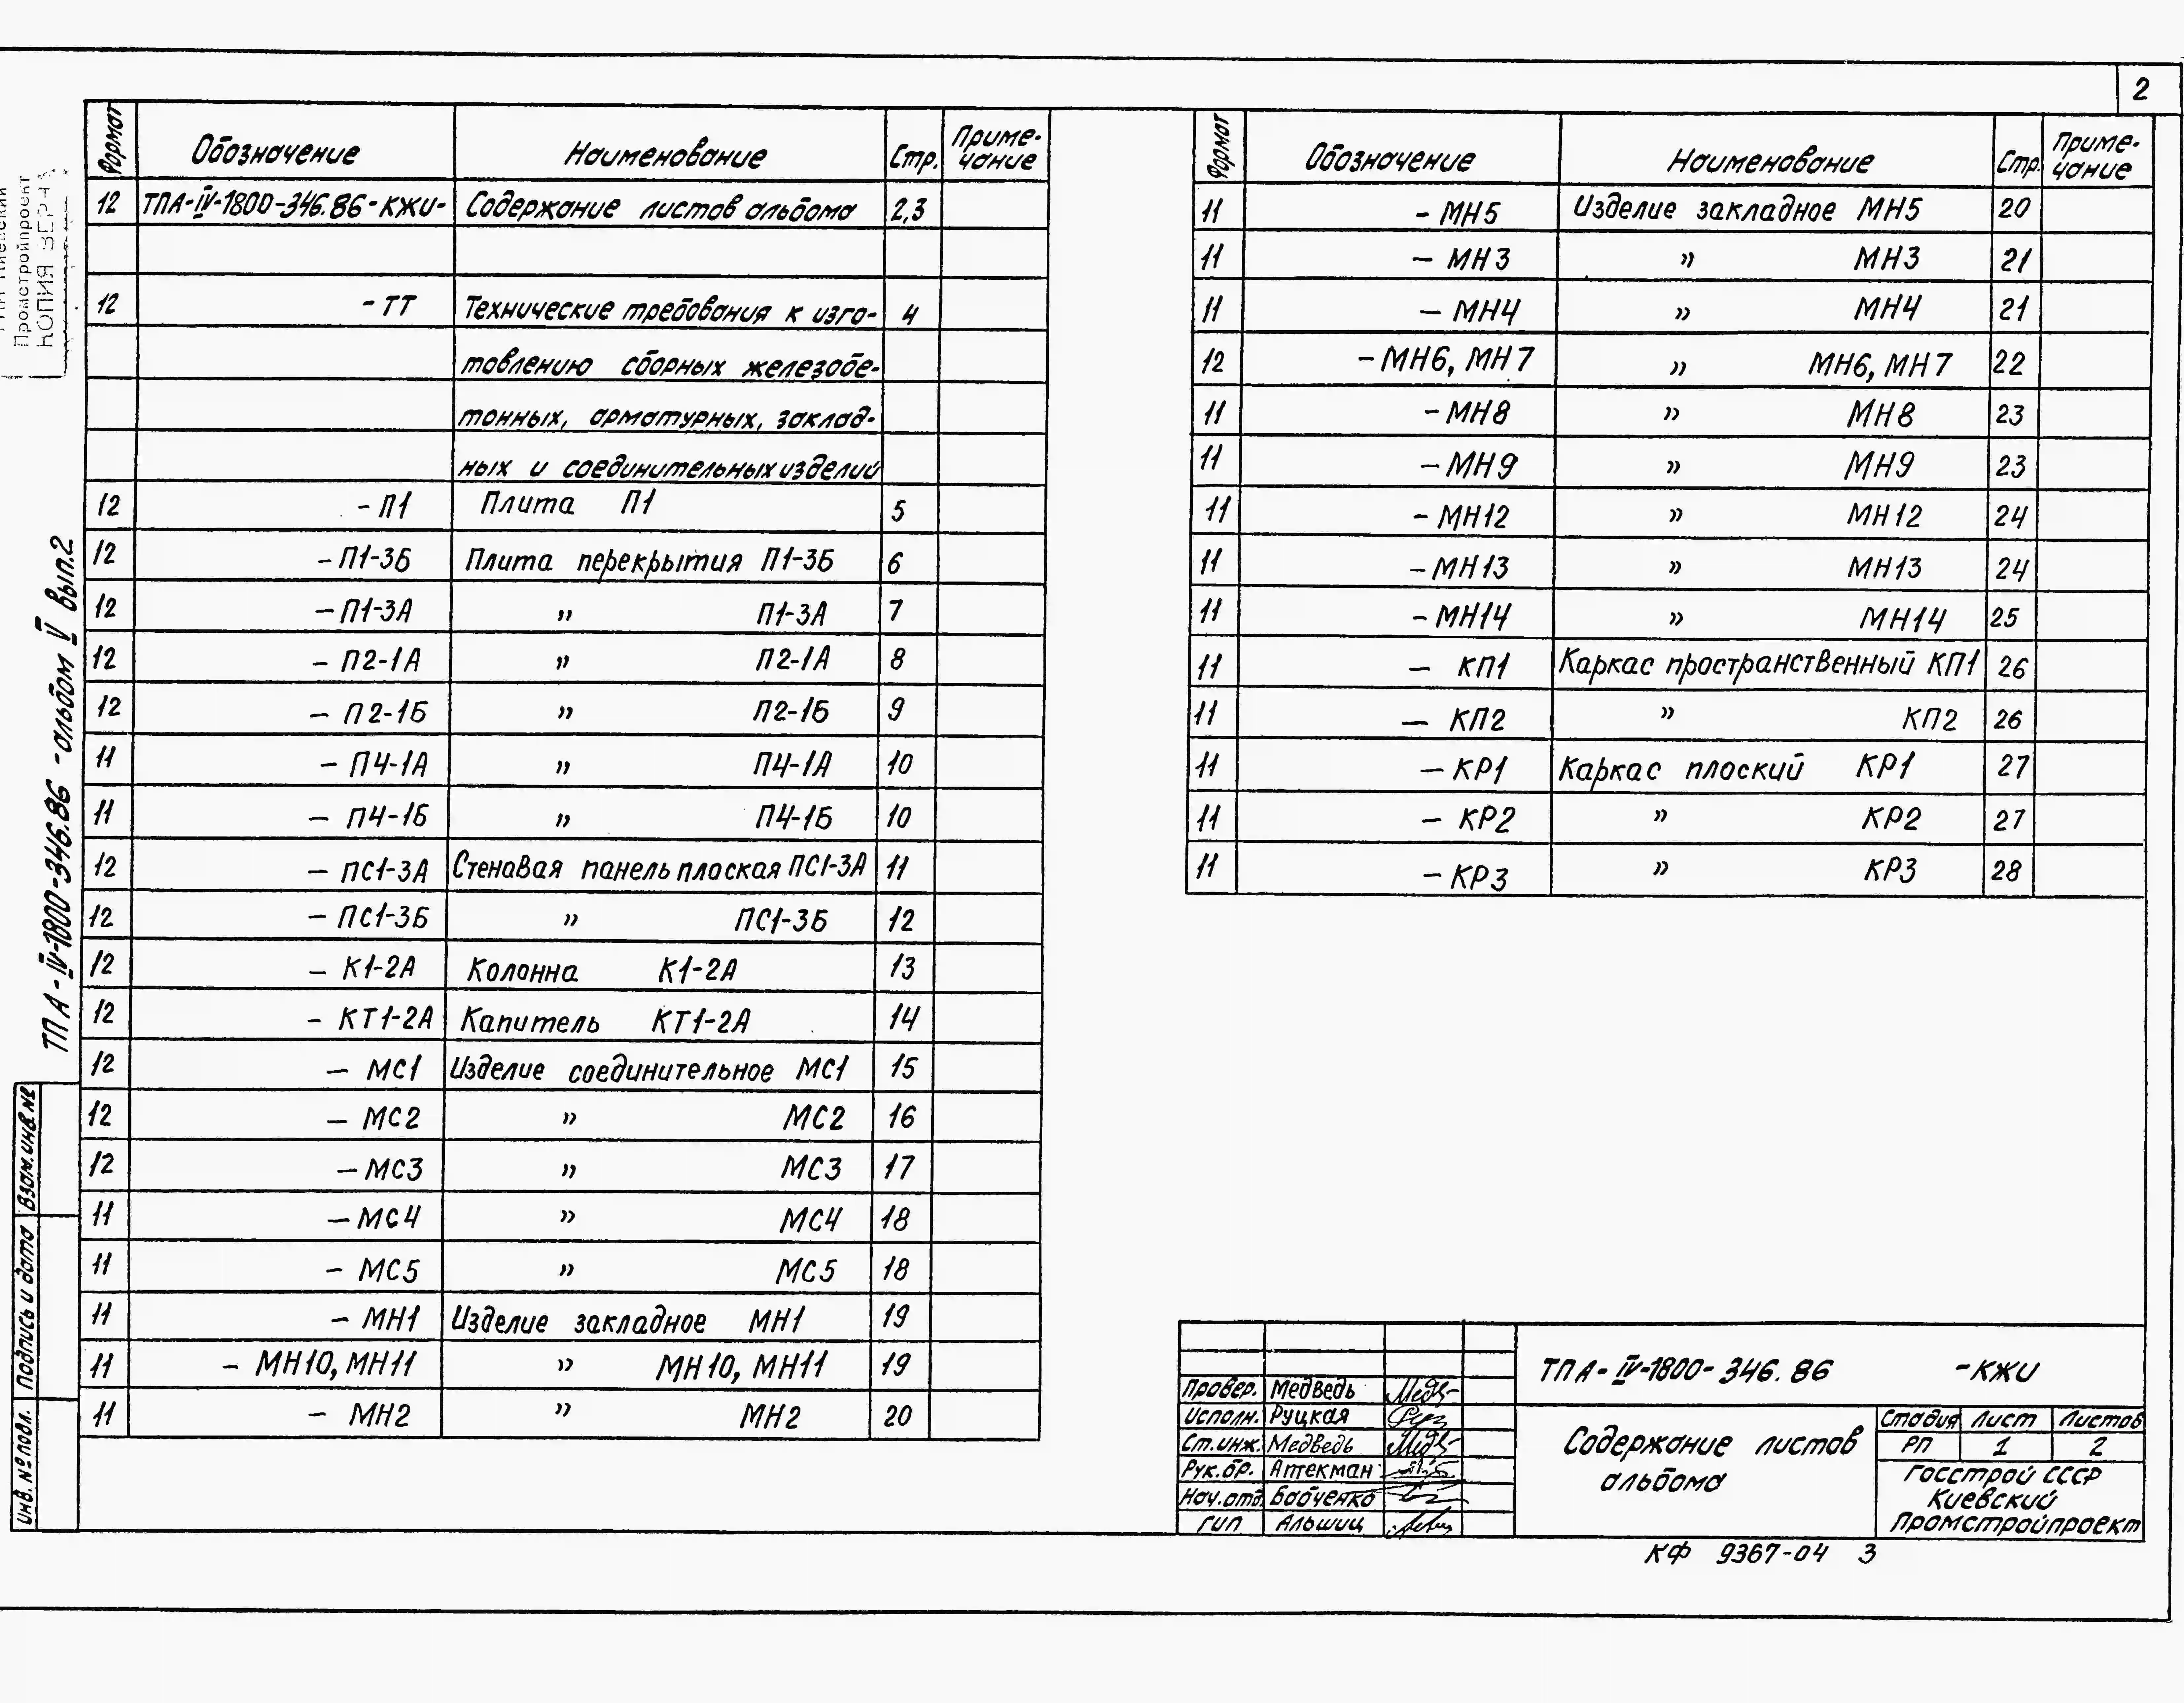 2
Формат Обозначение Наименование Стр. Приме-чание
12 ТПА-IV-1800-346.86-КЖИ- Содержание листов альбома 2,3
12 -ТТ Технические требования к изго- 4
товлению сборных железобе-
тонных, арматурных, заклад-
ных и соединительных изделий
12 -П1 Плита П1 5
12 -П1-3Б Плита перекрытия П1-3Б 6
12 -П1-3А " П1-3А 7
12 - П2-1А " П2-1А 8
12 - П2-1Б " П2-1Б 9
11 - П4-1А " П4-1А 10
11 - П4-1Б " П4-1Б 10
12 - ПС1-3А Стеновая панель плоская ПС1-3А 11
12 - ПС1-3Б " ПС1-3Б 12
12 - К1-2А Колонна К1-2А 13
12 - КТ1-2А Капитель КТ1-2А 14
12 - МС1 Изделие соединительное МС1 15
12 - МС2 " МС2 16
12 - МС3 " МС3 17
11 - МС4 " МС4 18
11 - МС5 " МС5 18
11 - МН1 Изделие закладное МН1 19
11 - МН10, МН11 " МН10, МН11 19
11 - МН2 " МН2 20
Формат Обозначение Наименование Стр. Приме-чание
11 - МН5 Изделие закладное МН5 20
11 - МН3 " МН3 21
11 - МН4 " МН4 21
12 - МН6, МН7 " МН6, МН7 22
11 - МН8 " МН8 23
11 - МН9 " МН9 23
11 - МН12 " МН12 24
11 - МН13 " МН13 24
11 - МН14 " МН14 25
11 - КП1 Каркас пространственный КП1 26
11 - КП2 " КП2 26
11 - КР1 Каркас плоский КР1 27
11 - КР2 " КР2 27
11 - КР3 " КР3 28
Промстройпроект
КОПИЯ ВЕРНА
ТПА-IV-1800-346.86 -альбом V вып.2
Взам.инв.№
Подпись и дата
Инв. № подл.
ТПА-IV-1800-346.86 -КЖИ
Провер. Медведь
Исполн. Руцкая
Ст.инж. Медведь
Рук.бр. Аптекман
Нач.отд. Бабченко
ГИП Альшиц
Содержание листов
альбома
Стадия Лист Листов
РП 1 2
Госстрой СССР
Киевский
Промстройпроект
КФ 9367-04 3